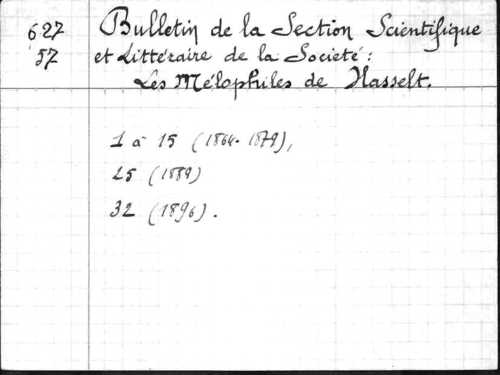 627 Bulletin de la Section Scientifique
57 et Littéraire de la Societé :
Les Mélophiles de Hasselt.
1 à 15 (1864-1879),
25 (1889)
32 (1896).